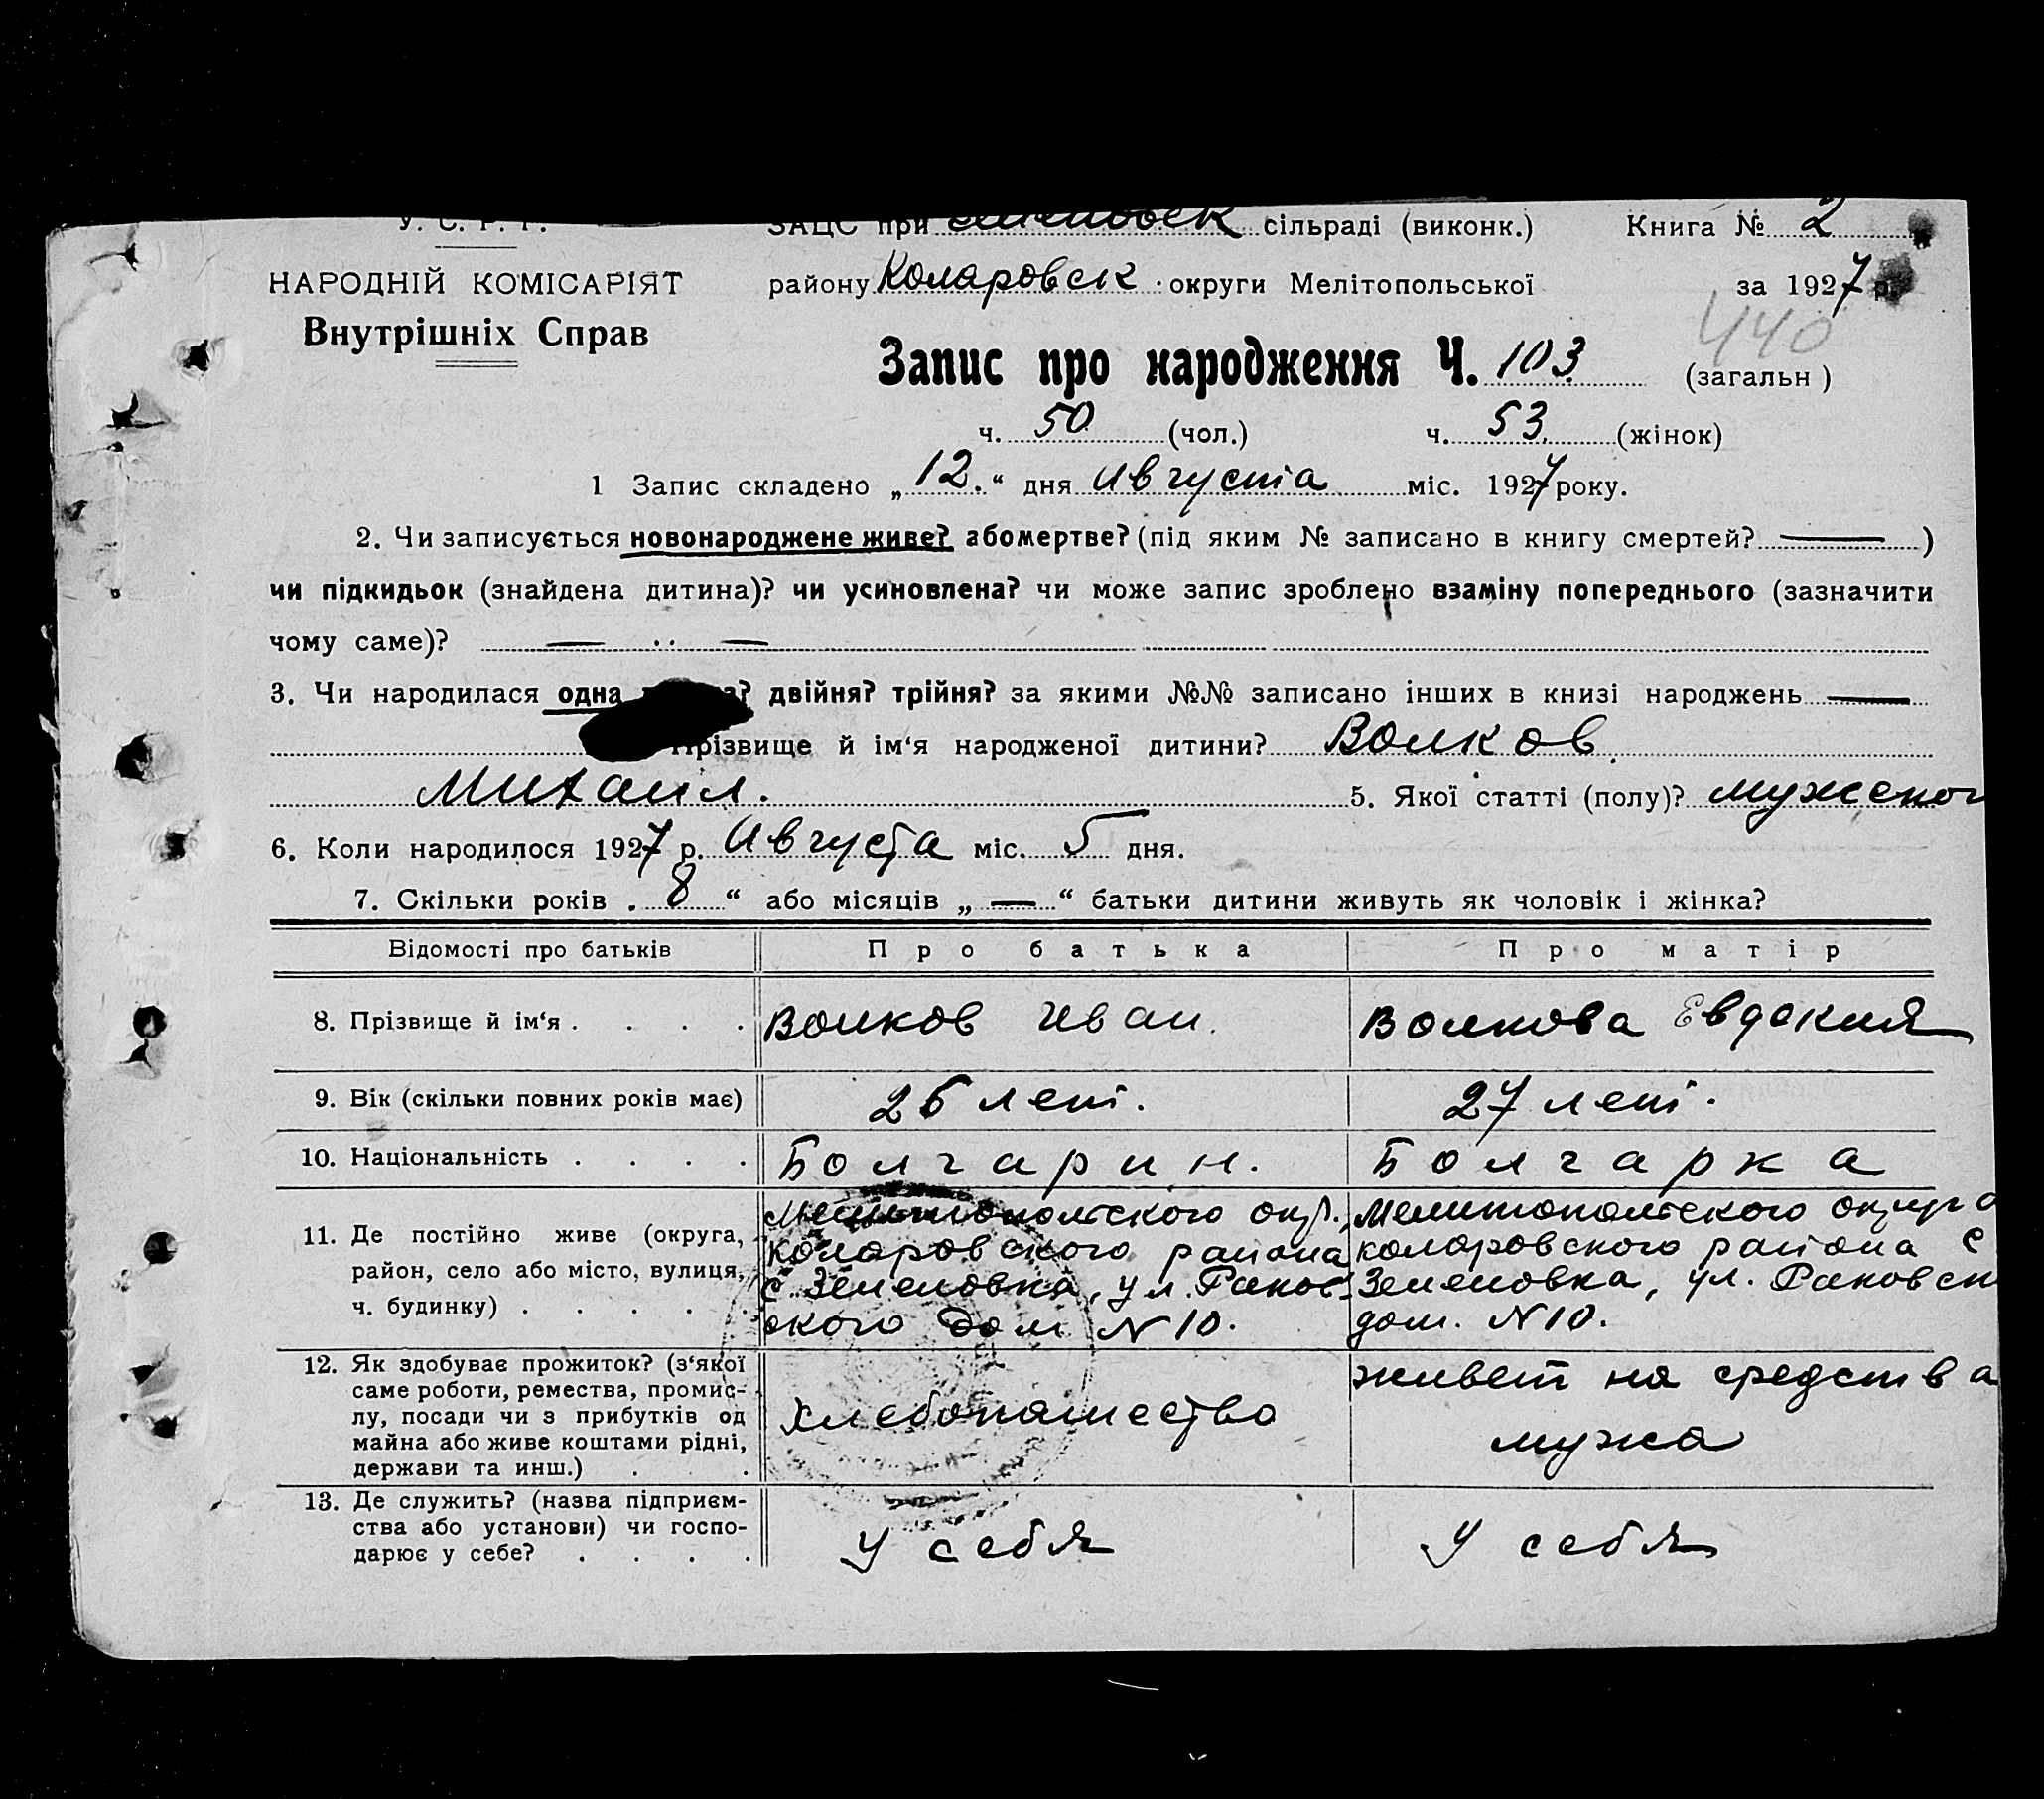 У. С. Р. Р.
ЗАЦС при сільраді (виконк.) Книга № 2
НАРОДНІЙ КОМІСАРІЯТ
району Коларовск округи Мелітопольської за 1927 р.
Внутрішніх Справ
440
Запис про народження Ч. 103 (загальн)
ч. 50 (чол.) ч. 53 (жінок)
1 Запис складено „12.“ дня Августа міс. 1927 року.
2. Чи записується новонароджене живе? або мертве? (під яким № записано в книгу смертей? — )
чи підкидьок (знайдена дитина)? чи усиновлена? чи може запис зроблено взаміну попереднього (зазначити
чому саме)? — —
3. Чи народилася одна двійня? трійня? за якими №№ записано інших в книзі народжень —
Прізвище й ім‘я народженої дитини? Волков
Михаил. 5. Якої статті (полу)? мужског
6. Коли народилося 1927 р. Августа міс. 5 дня.
7. Скільки років . 8 “ або місяців „ — “ батьки дитини живуть як чоловік і жінка?
Відомості про батьків Про батька Про матір
8. Прізвище й ім‘я . . . . Волков Иван. Волкова Евдокия
9. Вік (скільки повних років має) 26 лет. 27 лет.
10. Національність . . . . Болгарин. Болгарка
11. Де постійно живе (округа,
район, село або місто, вулиця,
ч. будинку) . . . . .
Мелитопольского окр.,
Коларовского района
с. Зеленовка, ул. Раков-
ского дом N 10.
Мелитопольского округа
Коларовского района с
Зеленовка, ул. Раковск
дом. N 10.
12. Як здобуває прожиток? (з‘якої
саме роботи, ремества, промис-
лу, посади чи з прибутків од
майна або живе коштами рідні,
держави та инш.) . . .
Хлебопашество
живет на средства
мужа
13. Де служить? (назва підприєм-
ства або установи) чи госпо-
дарює у себе? . . . .
У себя
У себя